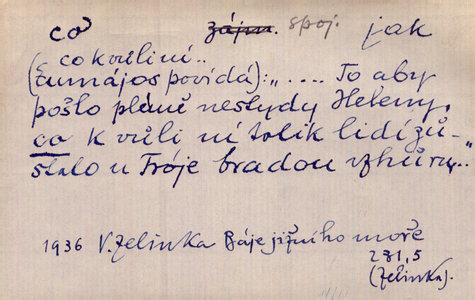 co zájm. spoj. jak
co k vůli ní..
(Eumájos povídá): „.... To aby
pošlo plémě neslydy Heleny,
co k vůli ní tolik lidí zů-
stalo u Tróje bradou vzhůru.."
1936 V. Zelinka Báje jižního moře
281,5
(Zelinka).